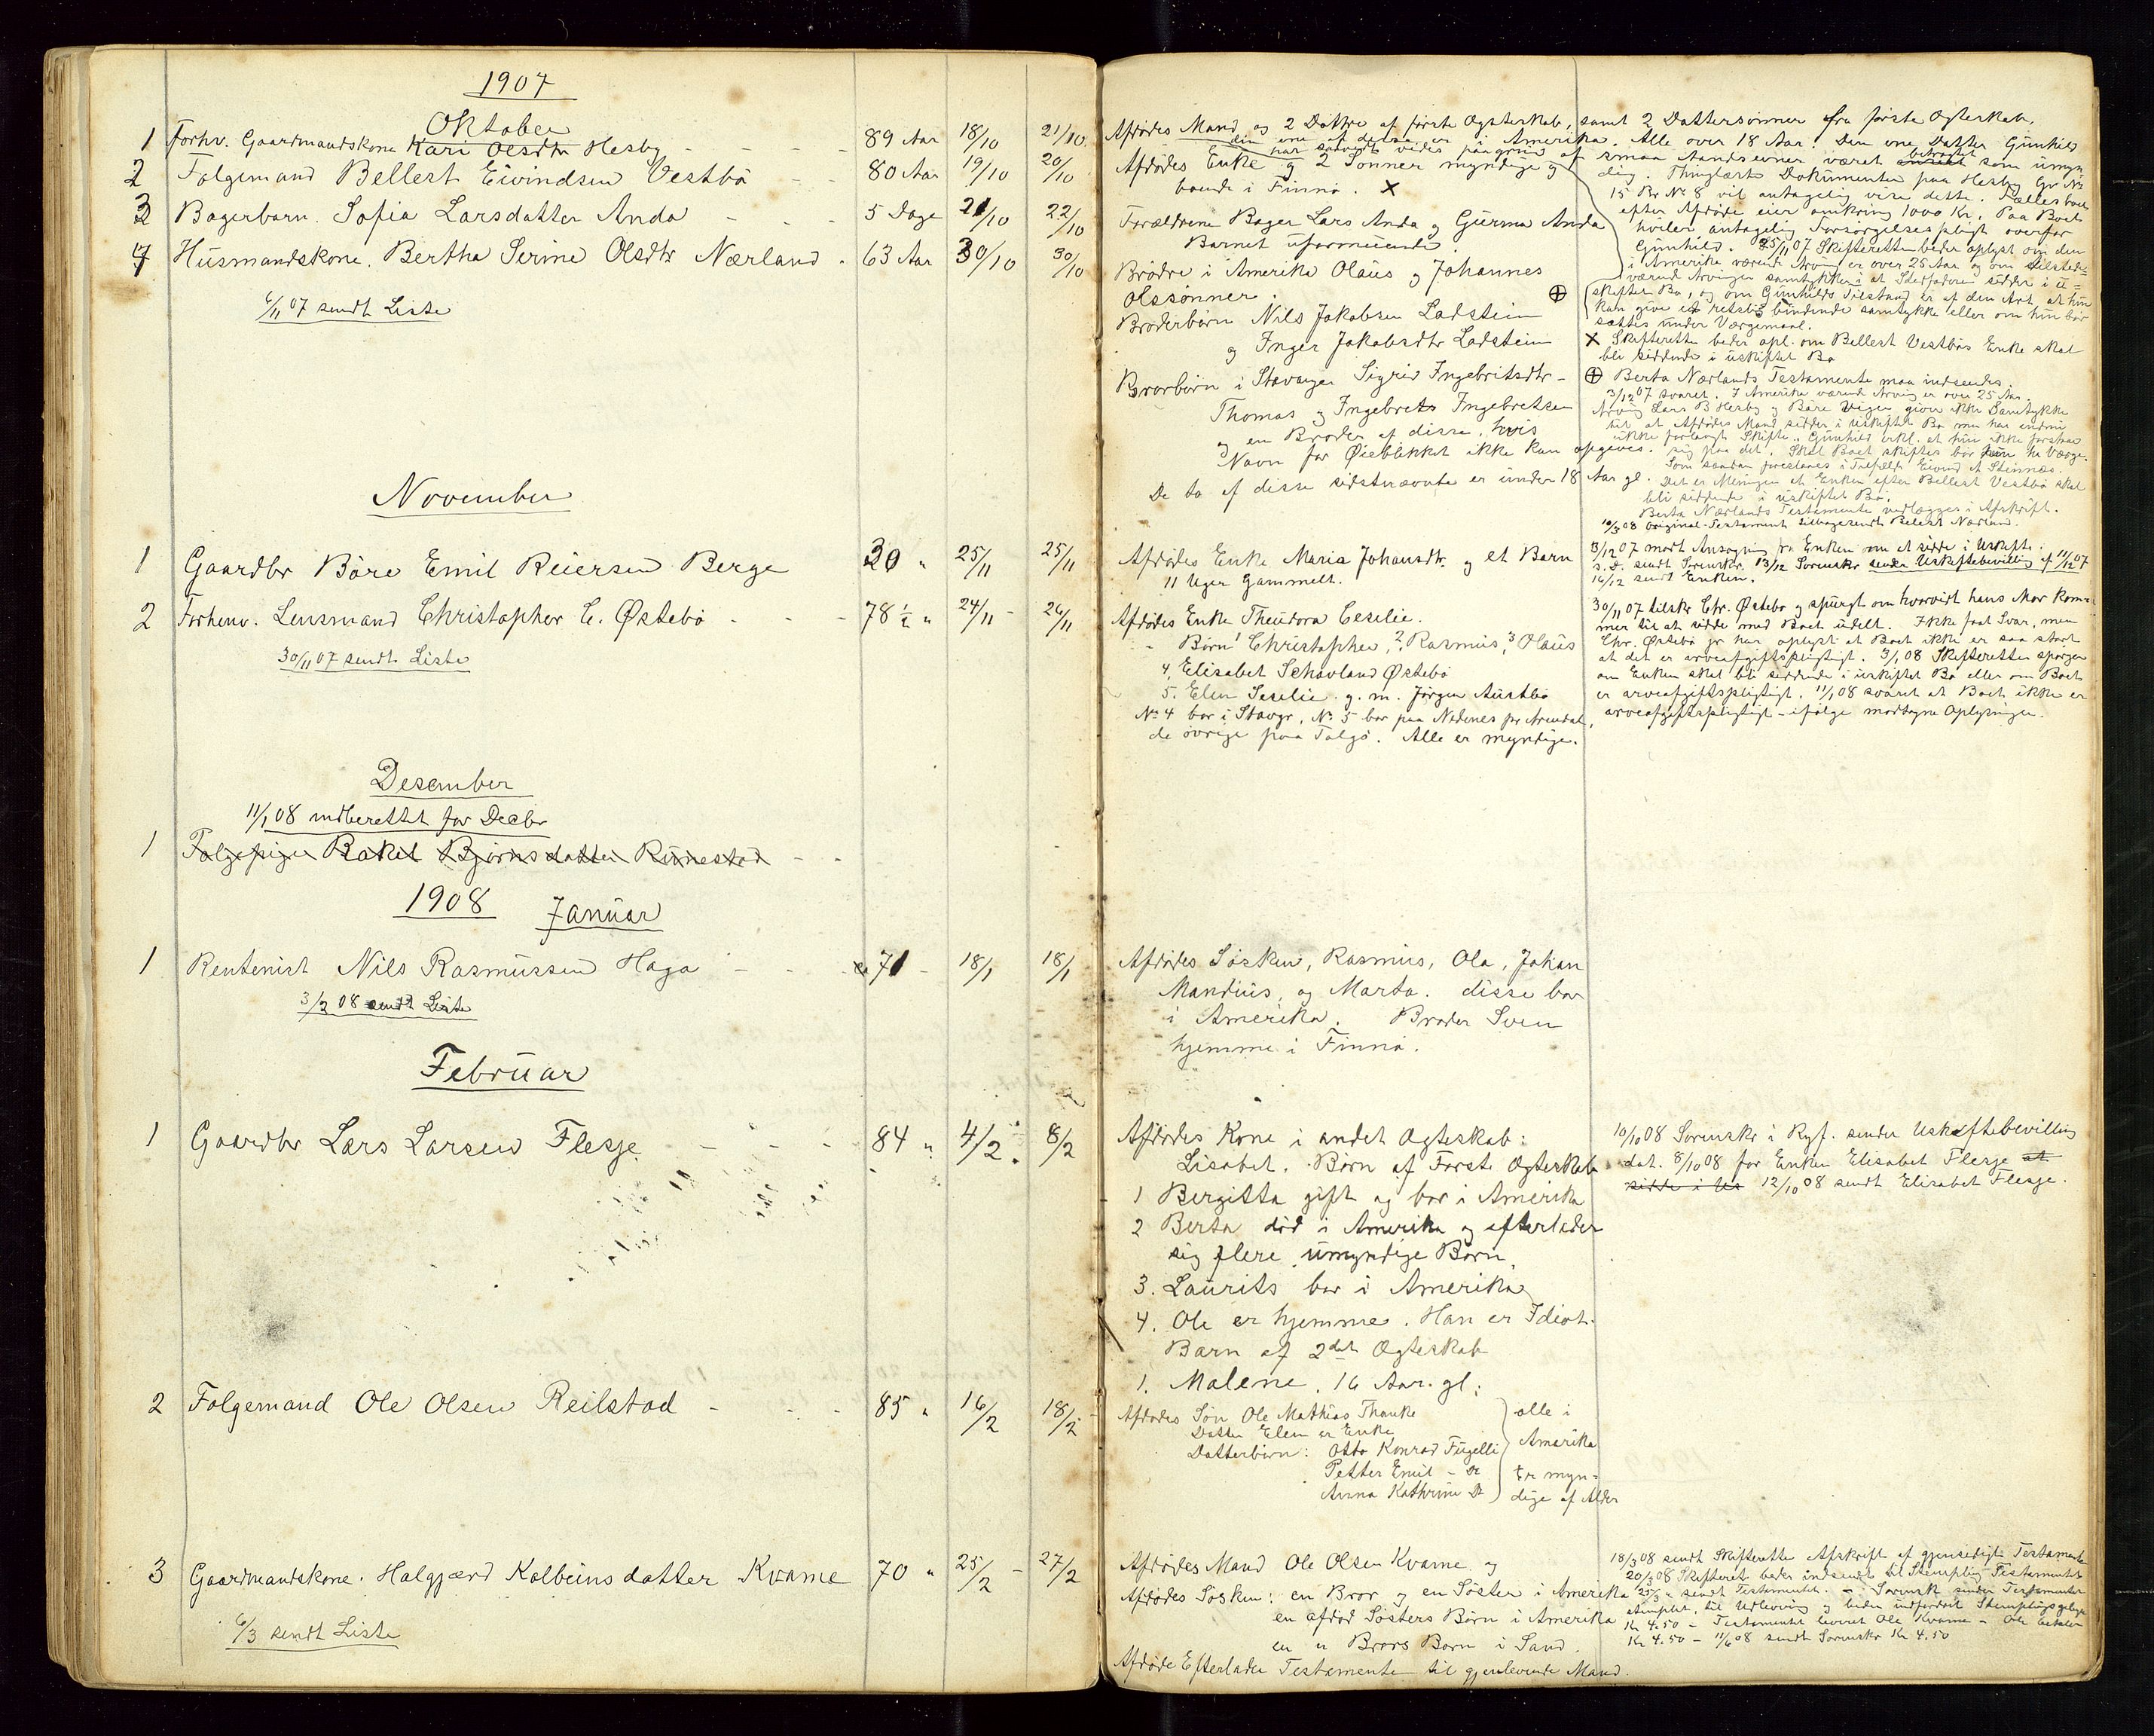 1907
Oktober
1 Forhv. Gaardmandskone Kari Olsdtr Hesby - - - 89 Aar 18/10 21/10
2 Folgemand Bellest Eivindsen Vestbö - - 80 Aar 19/10 20/10
3 Bagerbarn. Sofia Larsdatter Anda - - - 5 Dage 21/10 22/10
4 Husmandskone. Bertha Serine Olsdtr Nærland - 63 Aar 30/10 30/10
6/11 07 sendt Liste
November
1 Gaardbr Böre Emil Reiersen Berge 30 " 25/11 25/11
2 Forhenv. Lensmand Christopher C. Østebö - - - 78 1/2 " 24/11 - 26/11
30/11 07 sendt Liste
Desember
11/1 08 indberettet for Decbr
1 Folgepige Rakel Bjørnsdatter Rimestad - -
1908 Januar
1 Rentenist Nils Rasmussen Haga - - - 71 - 18/1 18/1
3/2 08 sendt Liste
Februar
1 Gaardbr Lars Larsen Flesje - - - 84 " 4/2 8/2
2 Folgemand Ole Olsen Reilstad - - - 85 " 16/2 18/2
3 Gaardmandskone. Halgjærd Kolbeinsdatter Kvame 70 " 25/2 - 27/2
6/3 sendt Liste
Afdødes Mand og 2 Døttre af første Ægteskab, samt 2 Dattersønner fra første Ægteskab,
den ene af disse er i Amerika. Alle over 18 Aar. Den ene Datter Gunhild
har saavidt vides paagrund af smaa Aandsevner været betragtet som umyn-
dig. Thinglæste Dokumenter paa Hesby Gr No
15 Br No 8 vil antagelig vise dette. Fællesboet
efter Afdøde eier omkring 1000 Kr. Paa Boet
hviler antagelig Forsørgelsespligt overfor
Gunhild. 25/11 07 Skifteretten beder oplyst om den
i Amerika værende Arving er over 25 Aar og om tilstede-
værende Arvinger samtykker i at Stedfaderen sidder i u-
skiftet Bo, og om Gunhilds Tilstand er af den Art, at hun
kan give et retslig bindende samtykke eller om hun bör
sættes under Værgemaal.
Afdødes Enke og 2 Sønner myndige og
boende i Finnö. X
Forældrene Bager Lars Anda og Gurine Anda
Barnet uformuende.
Brödre i Amerika Olaus og Johannes
Olssønner. ⊕
Broderbörn Nils Jakobsen Ladstein
og Inger Jakobsdtr Ladstein
Brorbörn i Stavanger Sigrid Ingebritsdtr -
Thomas og Ingebret Ingebretsen
og en Broder af disse, hvis
Navn for Øieblikket ikke kan opgives.
De to af disse sidstnævnte er under 18 Aar gl.
X Skifteretten beder opl. om Bellest Vestbös Enke skal
bli siddende i uskiftet Bo
⊕ Berta Nærlands Testamente maa indsendes.
3/12 07 svaret. I Amerika værende Arving er over 25 Aar.
Arving Lars B Hesby og Böre Vigen giver ikke Samtykke
til at Afdødes Mand sidder i Uskiftet Bo men har endnu
ikke forlangt Skifte. Gunhild erkl. at hun ikke forstaar
sig paa det. Skal Boet skiftes bör hun ha Værge.
Som saadan foreslaaes i Tilfælde Eivind A Steinnes.
Det er Meningen at Enken efter Bellest Vestbö skal
bli siddende i uskiftet Bo.
Berta Nærlands Testamente vedlægges i Afskrift.
10/3 08 Original-Testament tilbagesendt Bellest Nærland.
Afdødes Enke Maria Johansdtr. og et Barn
11 Uger Gammelt.
3/12 07 modt Ansøgning fra Enken om at sidde i Uskifte.
s. D. sendt Sorenskr. 13/12 Sorenskr sender Uskiftebevilling af 11/12 07
16/12 sendt Enken.
Afdødes Enke Theodora Cesilie.
- Börn 1 Christopher, 2. Rasmus, 3 Olaus
4. Elisabet Schavland Østebö
5. Elen Seselie. g. m. Jörgen Austbö
No 4 bor i Stavgr, No 5 bor paa Nedenes pr Arendal,
de övrige paa Talgö. Alle er myndige.
30/11 07 tilskr Chr. Østebö og spurgt om hvorvidt hans Mor kom-
mer til at sidde med Boet udelt. Ikke faat Svar, men
Chr. Østebö jr har oplyst at Boet ikke er saa stort
at det er arveafgiftspligtigt. 3/1 08 Skifteretten spörger
om Enken skal bli siddende i uskiftet Bo eller om Boet
er arveafgiftspligtigt. 11/1 08 svaret at Boet ikke er
arveafgiftspligtigt - ifölge modtagne Oplysninger.
Afdödes Sösken, Rasmus, Ola, Johan
Mandius, og Marta. disse bor
i Amerika. Broder Sven
hjemme i Finnö.
Afdödes Kone i andet Ægteskab:
Lisabet. Börn af Förste Ægteskab
1 Bergitta gift og bor i Amerika
2 Berta död i Amerika og efterlader
sig flere umyndige Börn.
3. Laurits bor i Amerika
4. Ole er hjemme. Han er Idiot.
Barn af 2det Ægteskab
1. Malene. 16 Aar. gl.
10/10 08 Sorenskr i Ryf. sender Uskiftebevilling
dat. 8/10 08 for Enken Elisabet Flesje at
sidde i Us 12/10 08 sendt Elisabet Flesje.
Afdödes Sön Ole Mathias Thauke
Datter Elen er Enke
Datterbörn: Otto Konrad Fugelli
Petter Emil - Do
Anna Kathrine Do
alle i
Amerika
Er myn-
dige af Alder
Afdödes Mand Ole Olsen Kvame og
Afdödes Sösken: en Bror og en Söster i Amerika
en afdöd Sösters Börn i Amerika
en Brors Born i Sand.
Afdöde Efterlader Testamente til gjenlevende Mand.
18/3 08 sendt Skifteretten Afskrift af gjensidigt Testamente
20/3 08 Skifteret beder indsendt til Stempling Testamentet
25/3 " sendt Testamentet. - Sorensk sender Testamentet
stemplet, til Udlevering og beder indfordret Stemplingsgebyr
Kr 4.50 - Testamentet leveret Ole Kvame - Ole betaler
Kr 4.50 - 11/6 08 sendt Sorenskr Kr 4.50